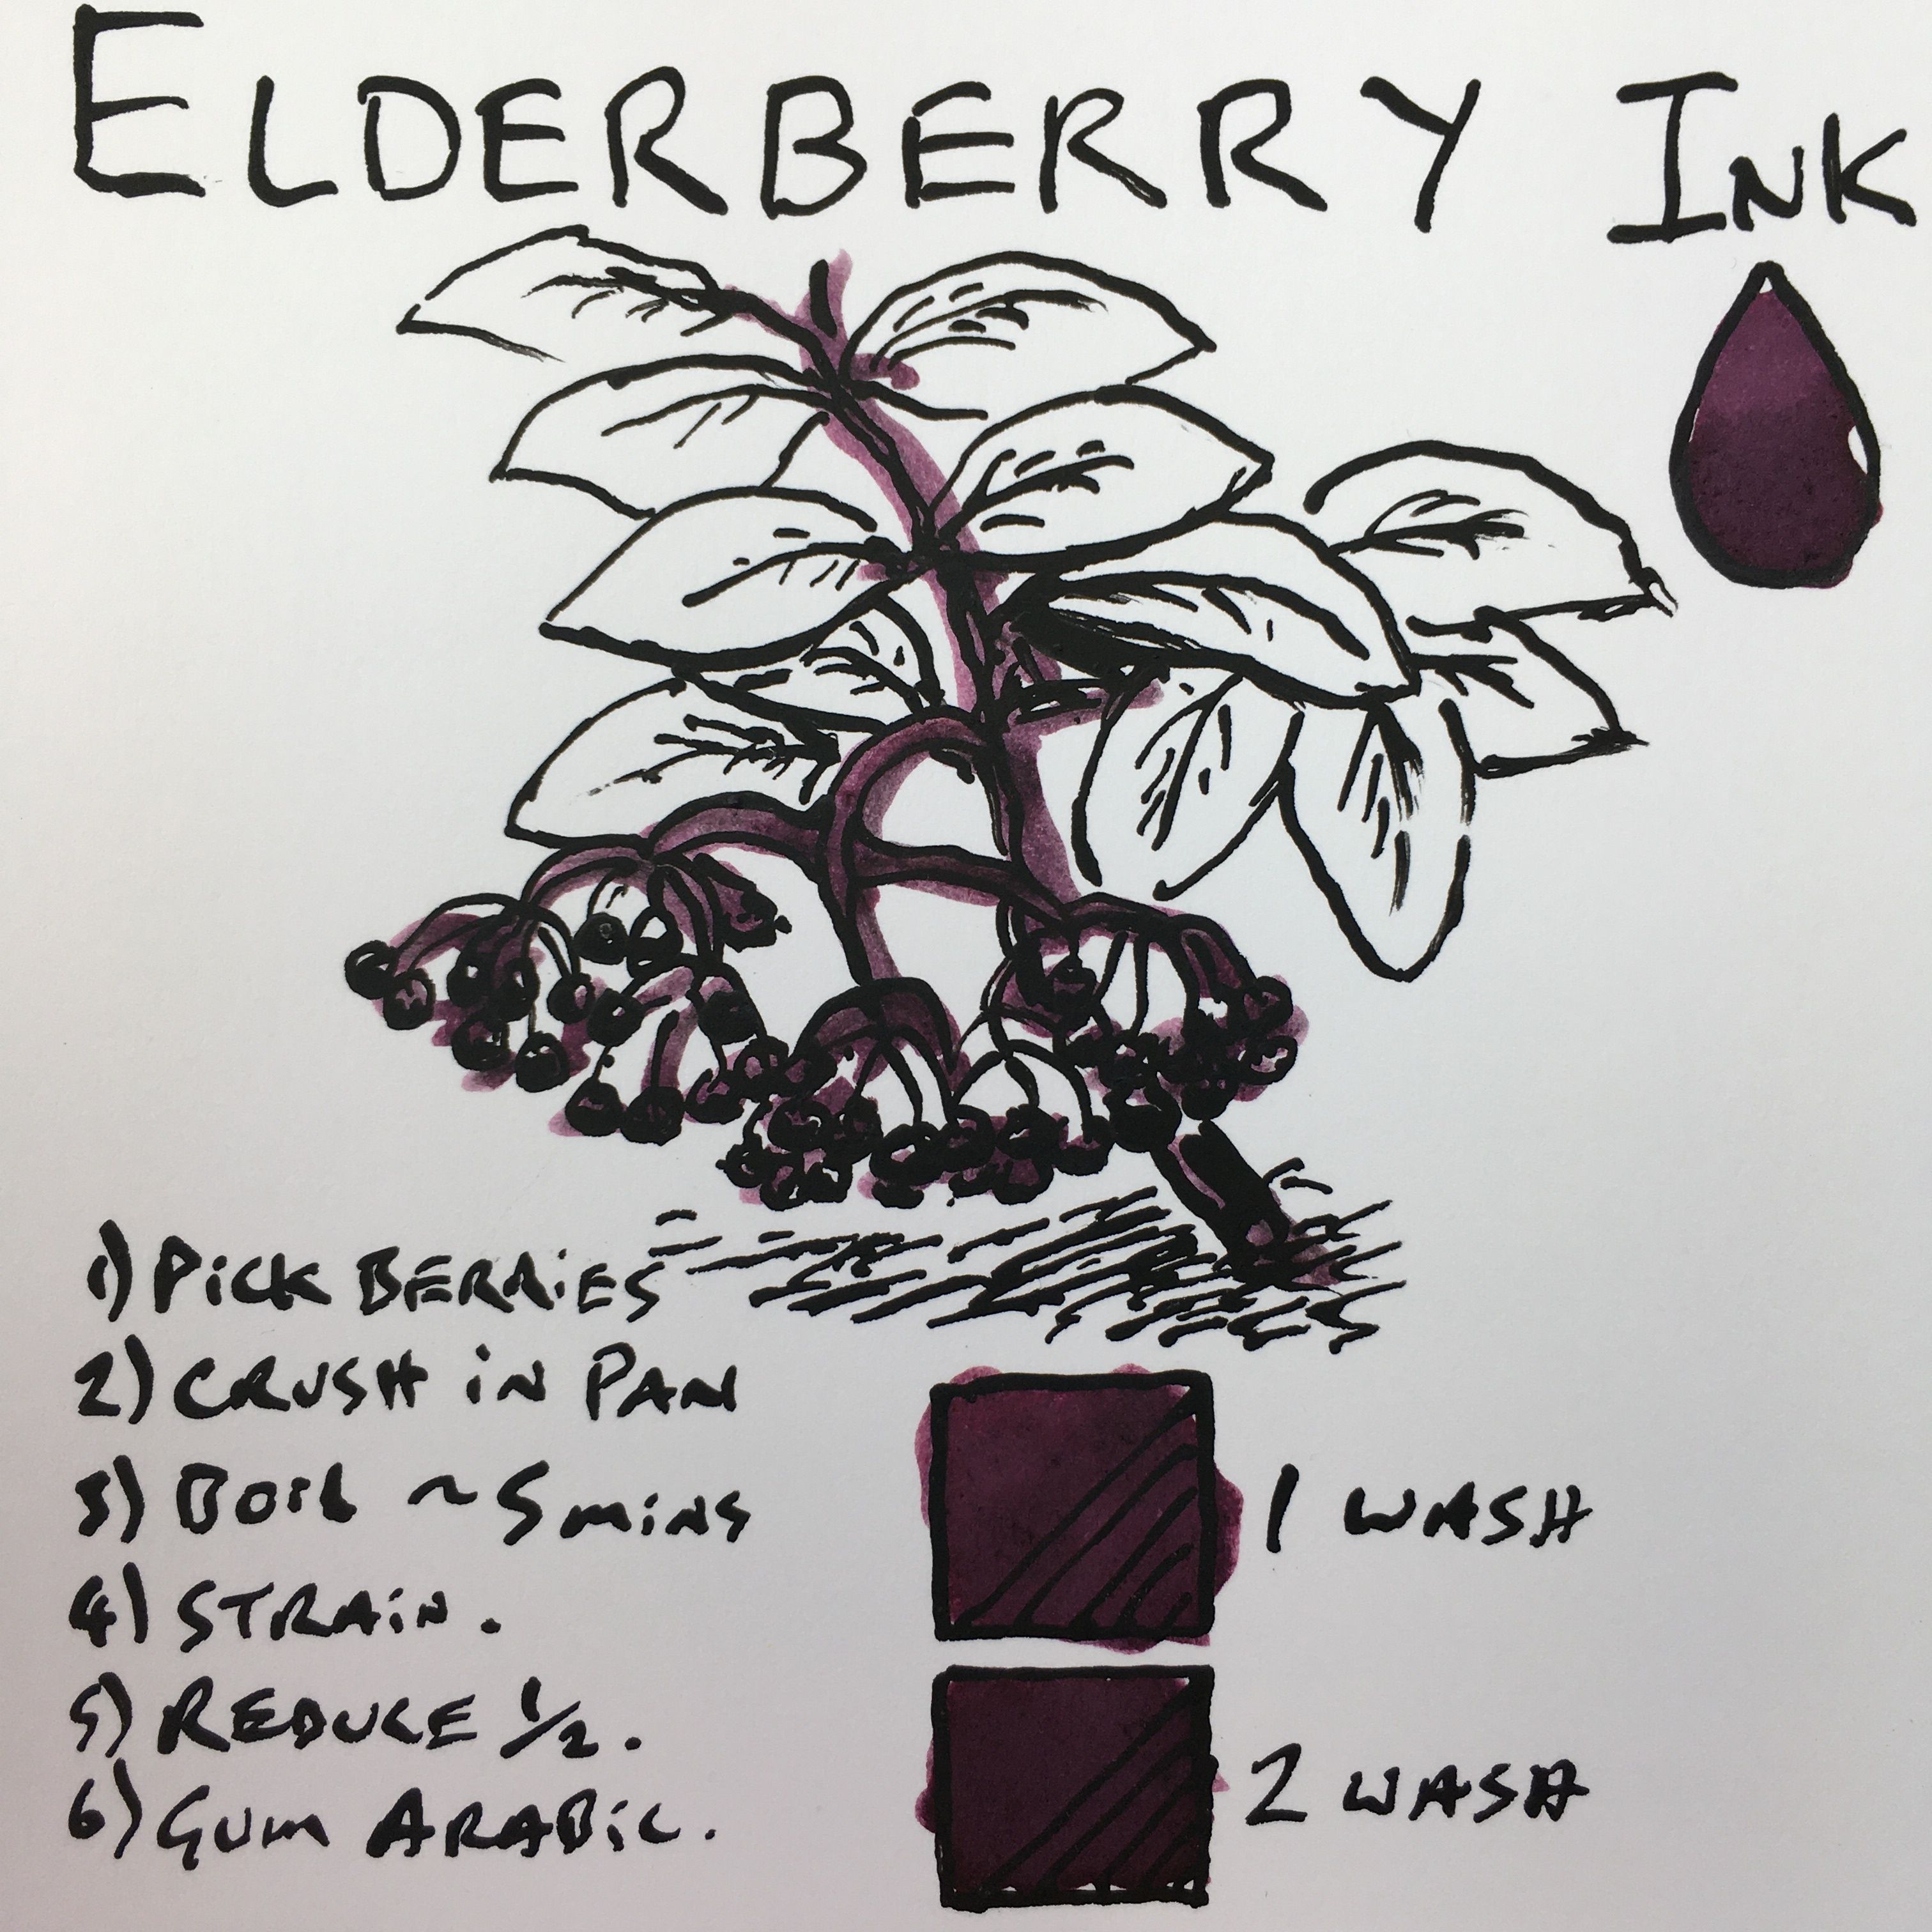 ELDERBERRY INK
1) PiCK BERRiES
2) CRUSH iN PAN
3) BOiL ~5 miNS
4) STRAiN.
5) REDUCE 1/2.
6) GUM ARABiC.
1 WASH
2 WASH